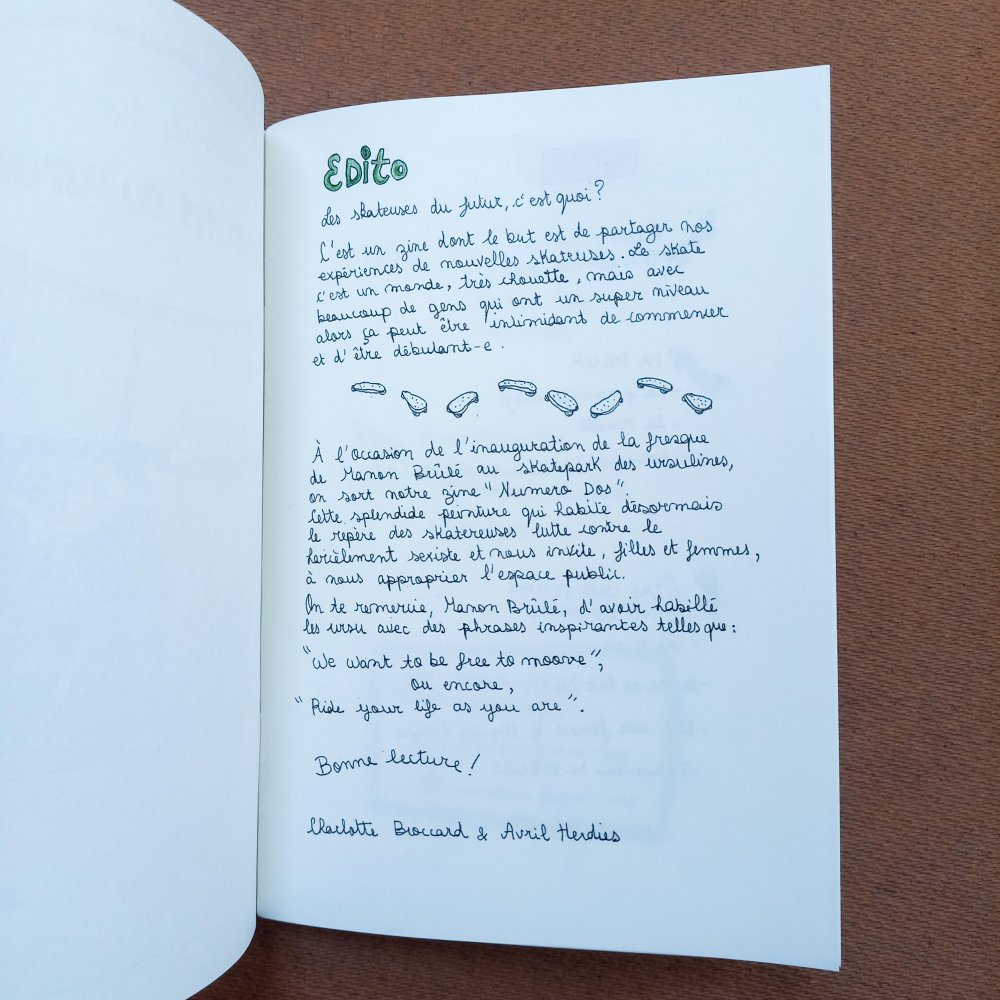 EDito
Les skateuses du futur, c'est quoi?
C'est un zine dont le but est de partager nos
expériences de nouvelles skateuses. Le skate
c'est un monde, très chouette, mais avec
beaucoup de gens qui ont un super niveau
alors ça peut être intimidant de commencer
et d'être débutant-e.
À l'occasion de l'inauguration de la fresque
de Manon Brûlé au skatepark des ursulines,
on sort notre zine "Numero Dos".
Cette splendide peinture qui habite désormais
le repère des skatereuses lutte contre le
hercèlement sexiste et nous invite, filles et femmes,
à nous approprier l'espace public.
On te remercie, Manon Brûlé, d'avoir habillé
les ursu avec des phrases inspirantes telles que:
"We want to be free to moove",
ou encore,
"Ride your life as you are".
Bonne lecture!
Charlotte Broccard & Avril Herdies